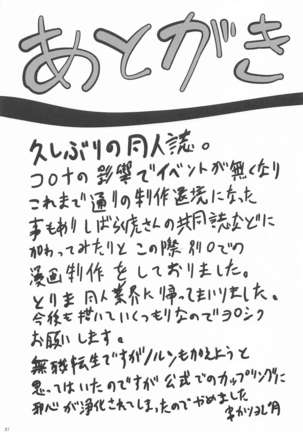 あとがき
久しぶりの同人誌。
コロナの影響でイベントが無くなり
これまで通りの制作環境になった
事もありしばらく虎さんの共同誌などに
加わってみたりとこの際別口での
漫画制作をしておりました。
とりま同人業界に帰ってまいりました。
今後も描いていくつもりなのでヨロシク
お願いします。
無職転生ですがノルンもかえようと
思ってはいたのですが公式でのカップリングに
邪心が浄化されてしまったのでやめました